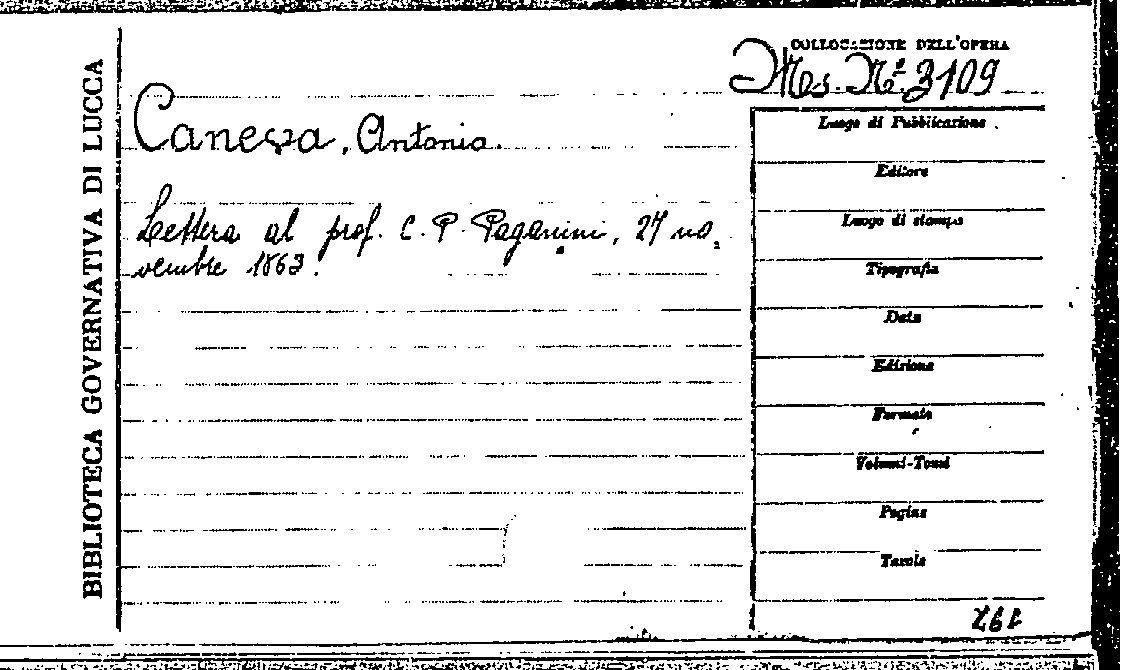 BIBLIOTECA GOVERNATIVA DI LUCCA
COLLOCAZIONE DELL'OPERA
Mss. Nº 3109
Canessa, Antonio.
Lettera al prof. C. P. Paganini, 27 no-
vembre 1863.
Luogo di Pubblicazione
Editore
Luogo di stampa
Tipografia
Data
Edizione
Formato
Volumi-Tomi
Pagine
Tavole